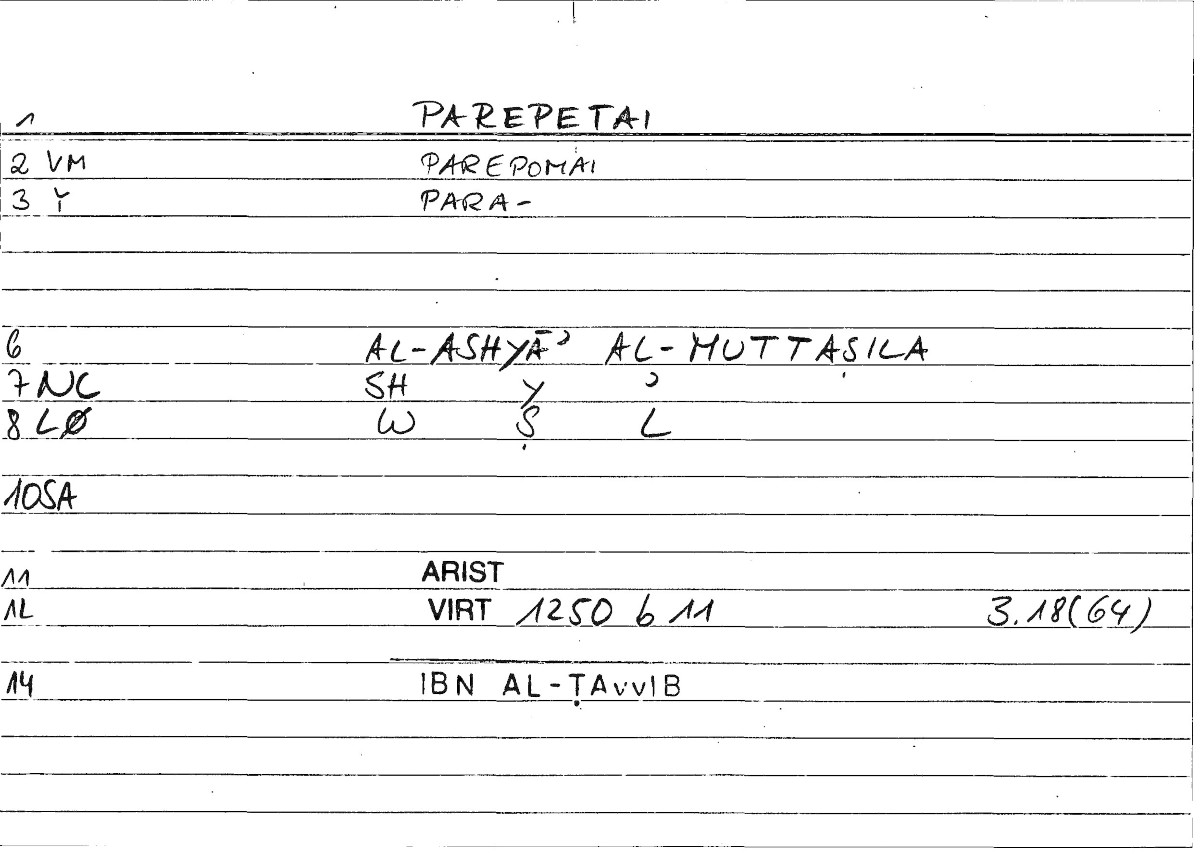 1 PAREPETAI
2 VM PAREPOMAI
3 Y PARA-
6 AL-ASHYĀʾ AL-MUTTAṢILA
7 NC SH Y ʾ
8 LØ W Ṣ L
10SA
11 ARIST
12 VIRT 1250 b 11 3.18(64)
14 IBN AL-ṬAYYIB